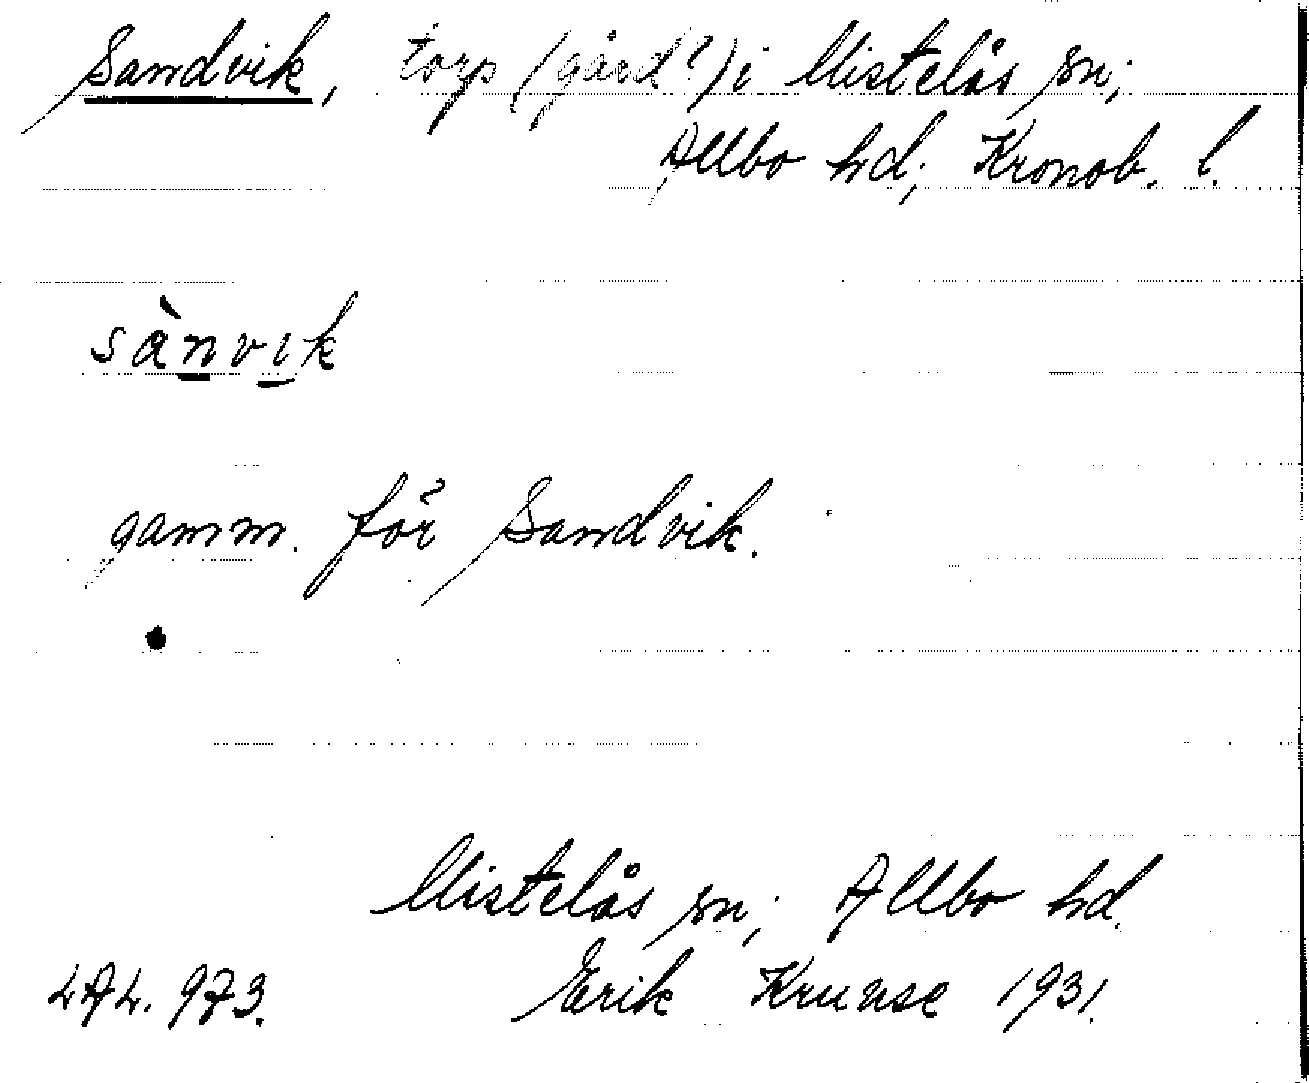 Sandvik, torp (gård?) i Mistelås sn;
Allbo hd; Kronob. l.
sànvık
gamm. för Sandvik.
Mistelås sn; Allbo hd.
LAL. 973. Erik Krunse 1931.